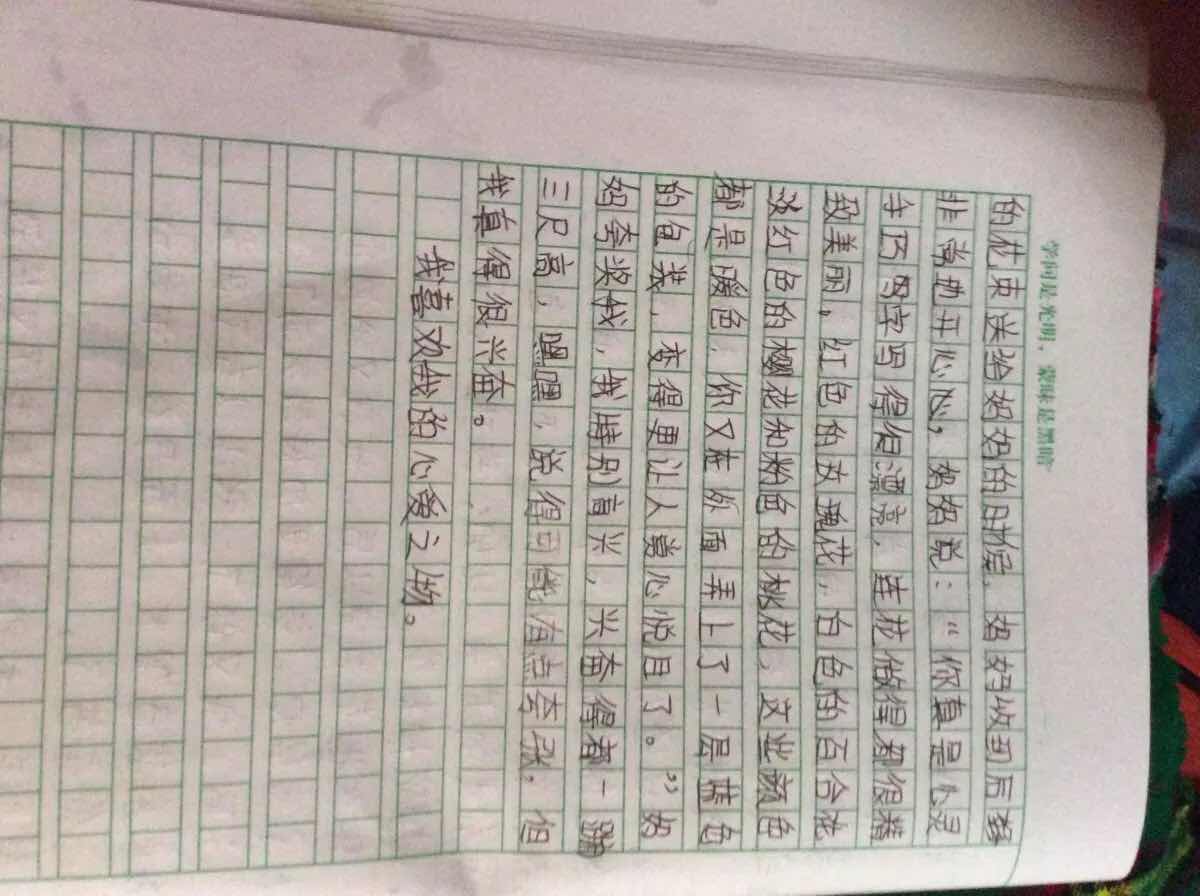 学问是光明，蒙昧是黑暗
的花束送给妈妈的时候，妈妈收到后
非常地开心心，妈妈说：“你真是心灵
手巧呀字写得很漂亮，连花做得都很精
致美丽。红色的玫瑰花，白色的百合花
淡红色的樱花和粉色的桃花，这些颜色
都是暖色，你又在外面弄上了一层色
的包装，变得更让人赏心悦目了。”妈
妈夸奖我，我特别高兴，兴奋得都一蹦
三尺高，嘿嘿，说得可能有点夸张，但
我真得很兴奋。
我喜欢我的心爱之物。